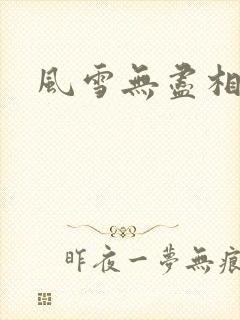 風雪無盡相
昨夜一夢無痕